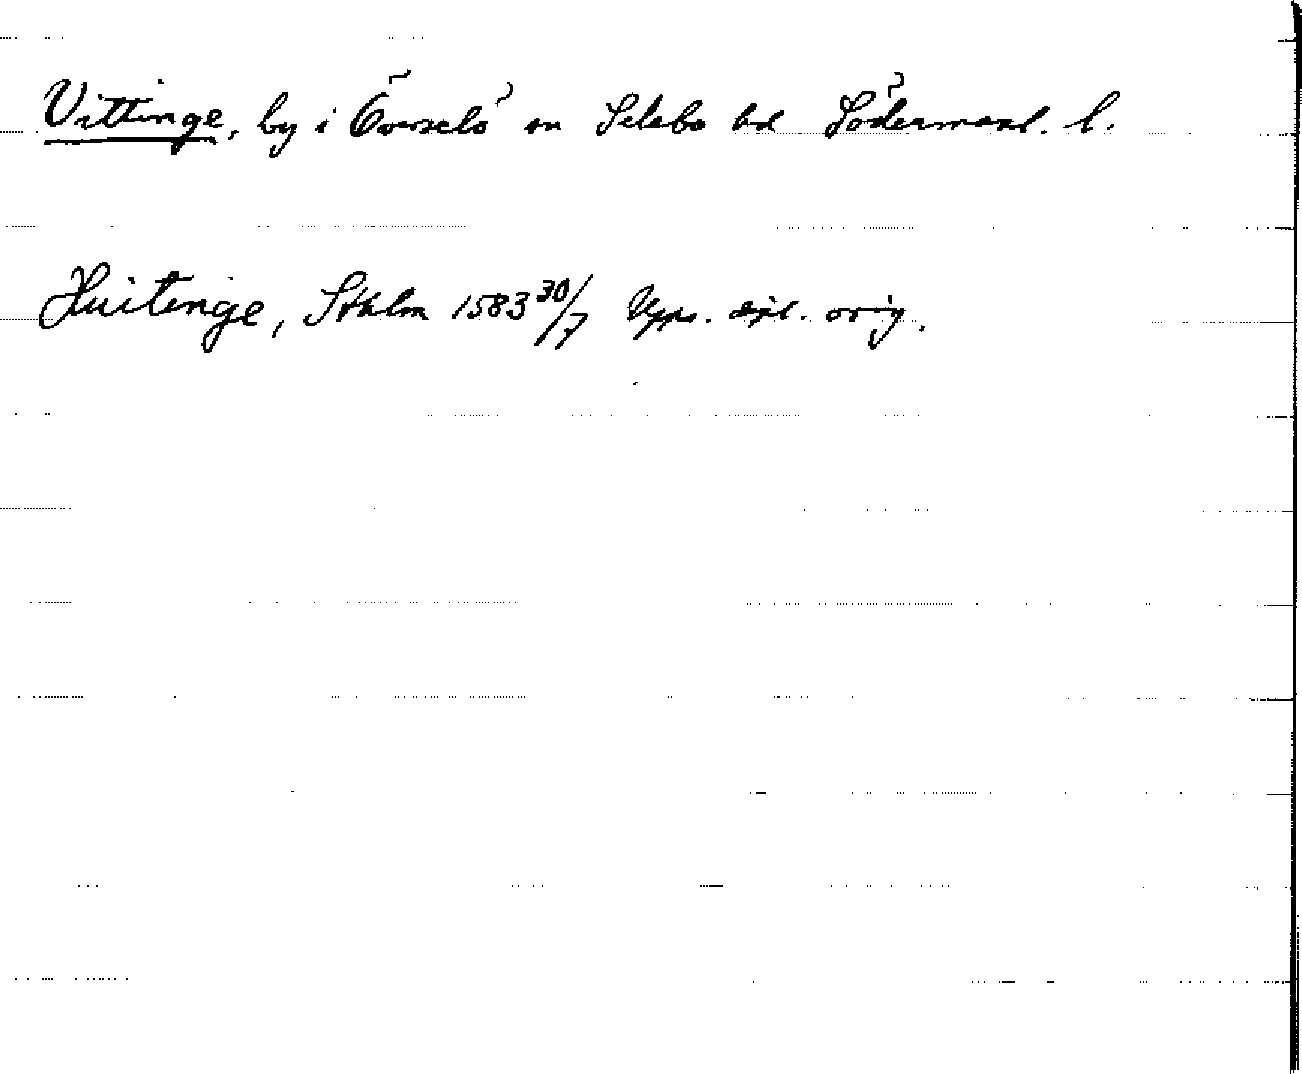 Vittinge, by i Överselö sn Selebo hd Södermanl. l.
Huitinge, Sthlm 1583 30/7 Upps. dipl. orig.